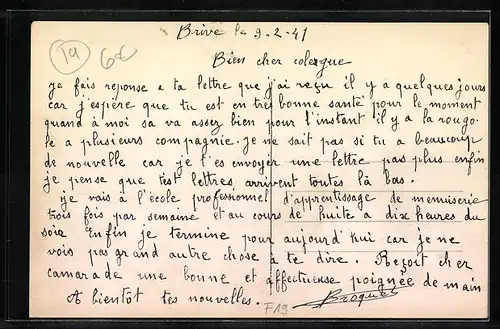 19
6€
Brive le 9-2-41
Bien cher colergue
je fais réponse a ta lettre que j'ai reçu il y a quelques jours
car j'espère que tu est en très bonne santé pour le moment
quand à moi sa va assez bien pour l'instant il y a la rougo-
le a plusieurs compagnie. je ne sait pas si tu a beaucoup
de nouvelle car je l'es envoyer une lettre pas plus enfin
je pense que test lettres arrivent toutes là bas.
je vais à l'école profesionnel d'apprentissage de menuiserie
trois fois par semaine et au cours de huite a dix heures du
soir. Enfin je termine pour aujourd'hui car je ne
vois pas grand autre chose à te dire. Reçoit cher
camarade une bonne et affectueuse poignée de main
A bientôt tes nouvelles.
F19